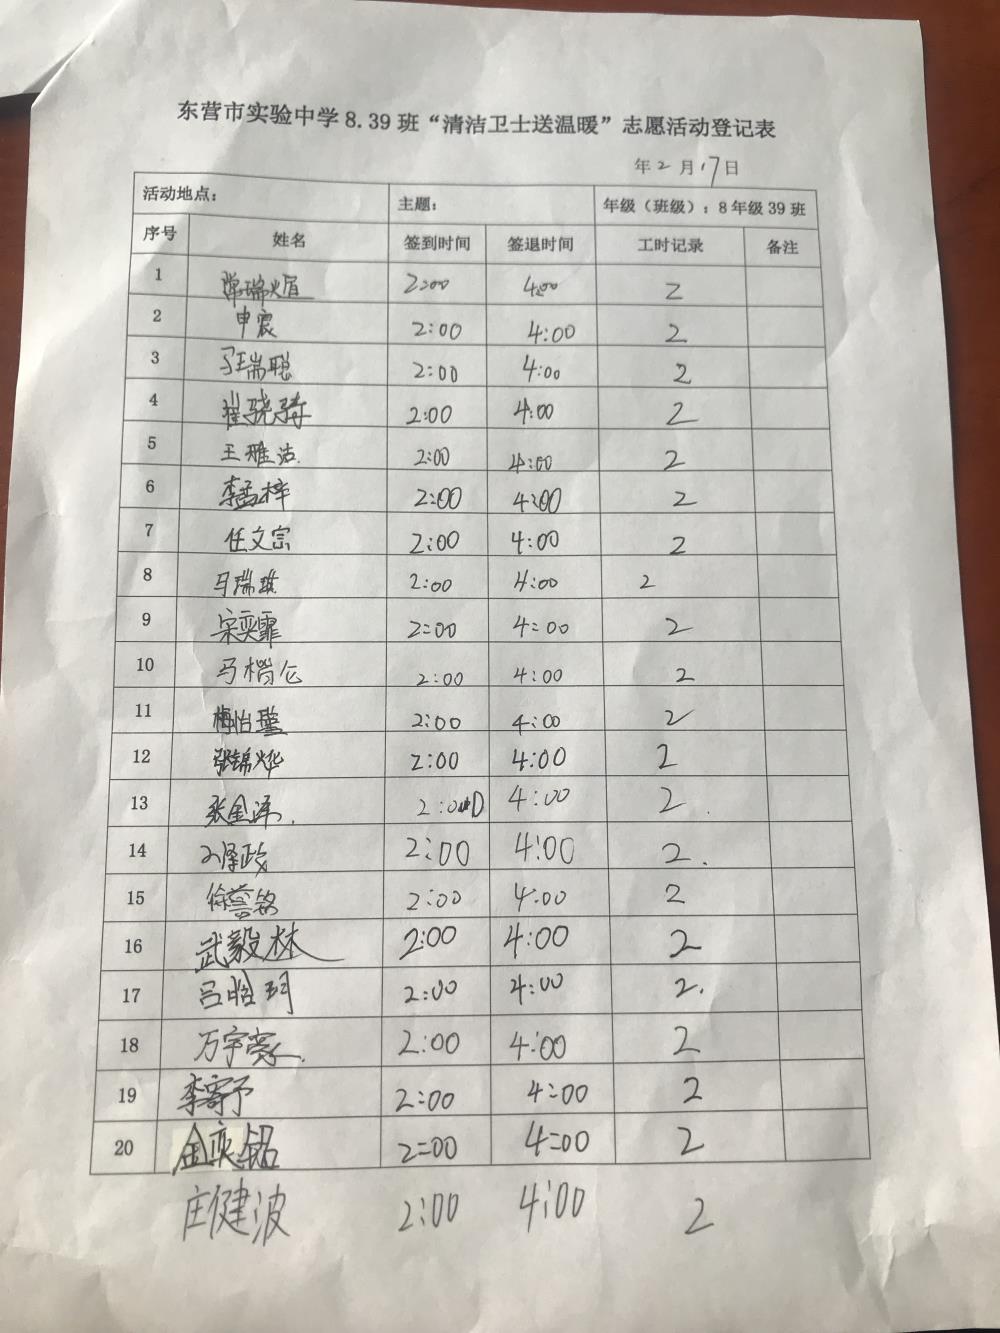 东营市实验中学8.39班“清洁卫士送温暖”志愿活动登记表
年2月17日
活动地点： 主题： 年级（班级）：8年级39班
序号 姓名 签到时间 签退时间 工时记录 备注
1 2:00 4:00 2
2 申震 2:00 4:00 2
3 马瑞聪 2:00 4:00 2
4 崔骁骑 2:00 4:00 2
5 王雅洁. 2:00 4:00 2
6 李孟梓 2:00 4:00 2
7 任文宗 2:00 4:00 2
8 马瑞琪 2:00 4:00 2
9 宋奕霏 2:00 4:00 2
10 马楷仑 2:00 4:00 2
11 梅怡瑾 2:00 4:00 2
12 张锦烨 2:00 4:00 2
13 张金泽. 2:00 4:00 2.
14 泽政 2:00 4:00 2.
15 徐誉铭 2:00 4:00 2
16 武毅林 2:00 4:00 2
17 吕晗珂 2:00 4:00 2.
18 万宇 2:00 4:00 2
19 李予 2:00 4:00 2
20 金奕铭 2:00 4:00 2
庄健波 2:00 4:00 2